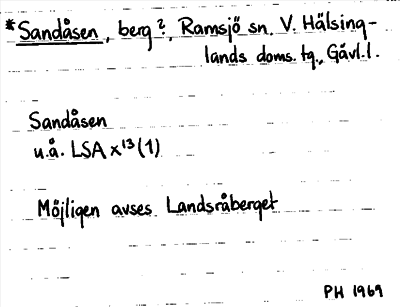 *Sandåsen, berg?, Ramsjö sn, V. Hälsing-
lands doms. tg., Gävl.l.
Sandåsen
u.å. LSA x¹³(1)
Möjligen avses Landsråberget
PH 1969